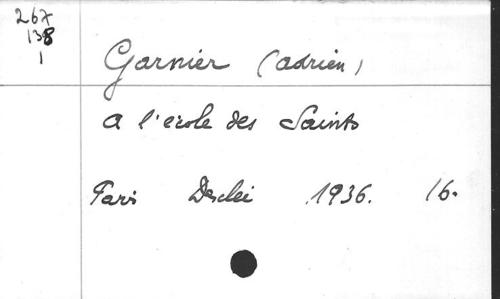 267
138
1
Garnier (adrien)
a l'école des Saints
Paris Desclei 1936. 16.